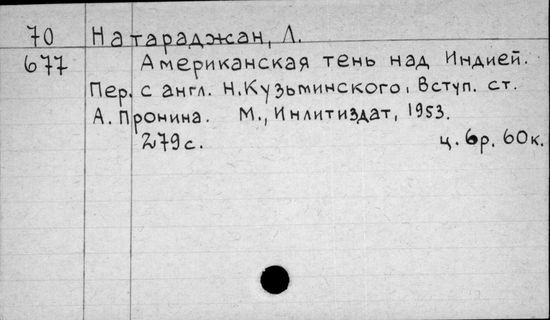 70 Натараджан, Л.
677 Американская тень над Индией.
Пер. с англ. Н.Кузьминского. Вступ. ст.
А. Пронина. М., Инлитиздат, 1953.
279с. ц. 6р. 60к.